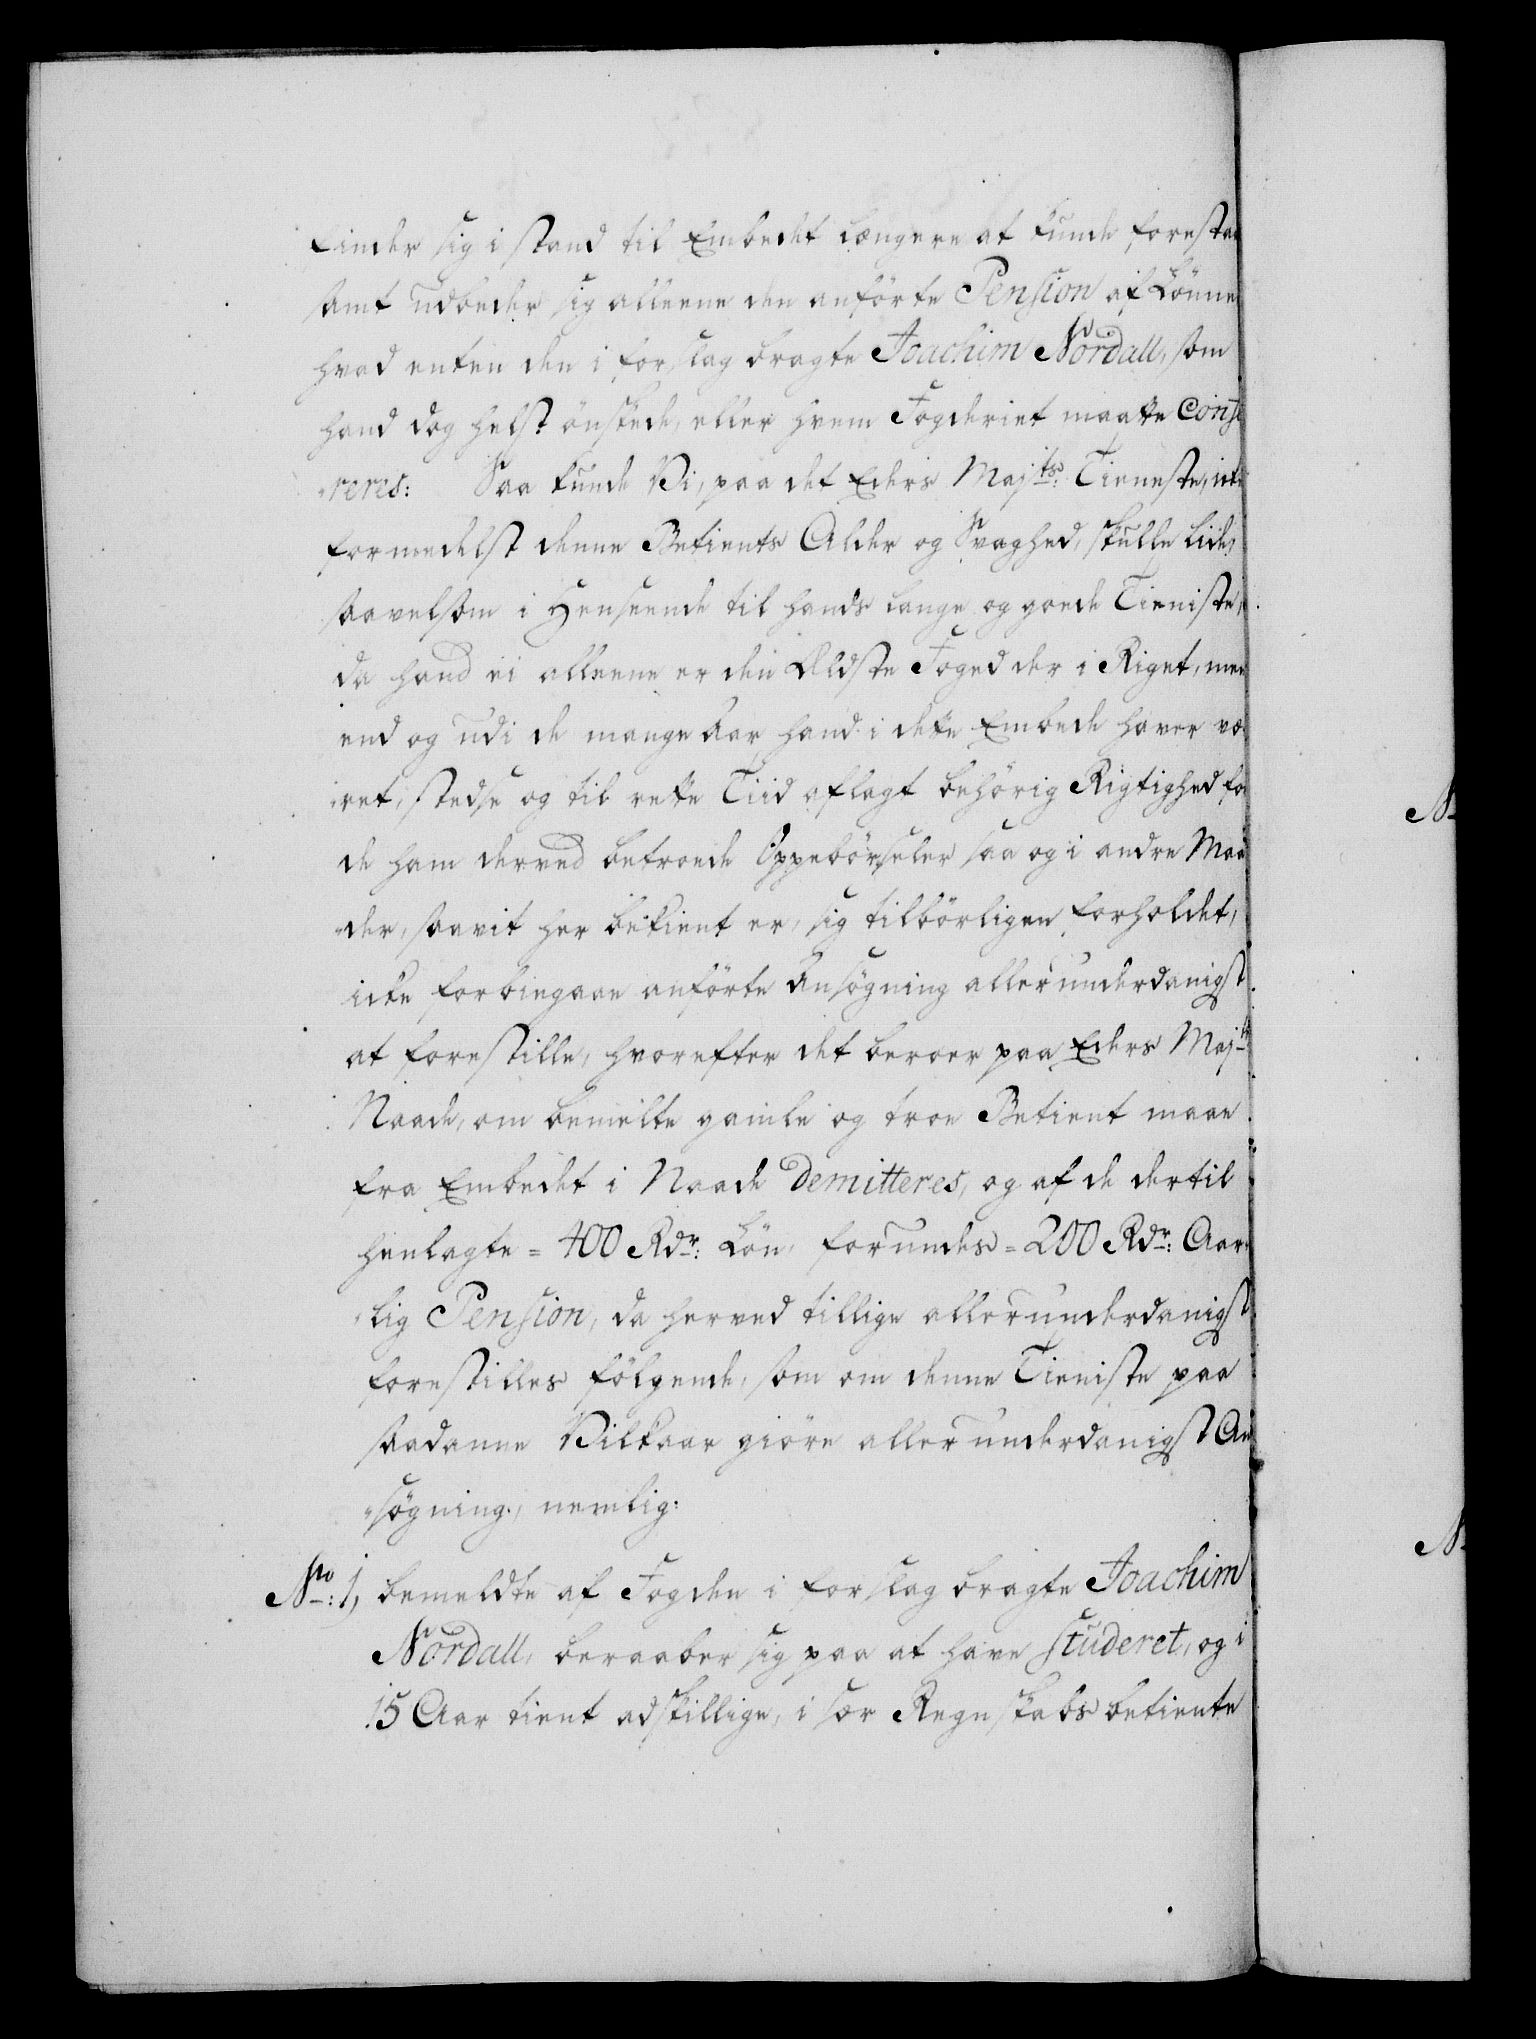 finder sig i stand til Embedet længere at kunde forestaa
samt udbeder sig alleene den anførte Pension af Lønne
hvad enten den i forslag bragte Joachim Nordall, som
hand dog helst ønskede, eller hvem Fogderiet maatte Confe
reres: Saa kunde Vi, paa det Eders Majts: Tieneste, icke
formedelst denne Betients Alder og Svaghed, skulle lide,
saavelsom i Henseende til hands lange og goede Tieniste,
da hand ei alleene er den Ældste Foged der i Riget, men
end og udi de mange Aar hand i dette Embede haver væ
ret, stedse og til rette Tiid aflagt behørig Rigtighed for
de ham derved betroede Oppebørseler saa og i andre Maa
der, saavit her bekient er, sig tilbørligen forholdet,
icke forbiegaae anførte Ansøgning allerunderdanigst
at forestille, hvorefter det beroer paa Eders Majts
Naade, om bemelte gamle og troe Betient maae
fra Embedet i Naade Demitteres, og af de dertil
henlagte = 400 Rdr: Løn, forundes = 200 Rdr: Aar
lig Pension, da herved tillige allerunderdanigst
forestilles følgende, som om denne Tieniste paa
saadanne Vilkaar giøre allerunderdanigst An
søgning, nemlig:
No: 1, bemeldte af Fogden i forslag bragte Joachim
Nordall, beraaber sig paa at have studeret, og i
15 Aar tient adskillige, i sær Regnskabs betiente